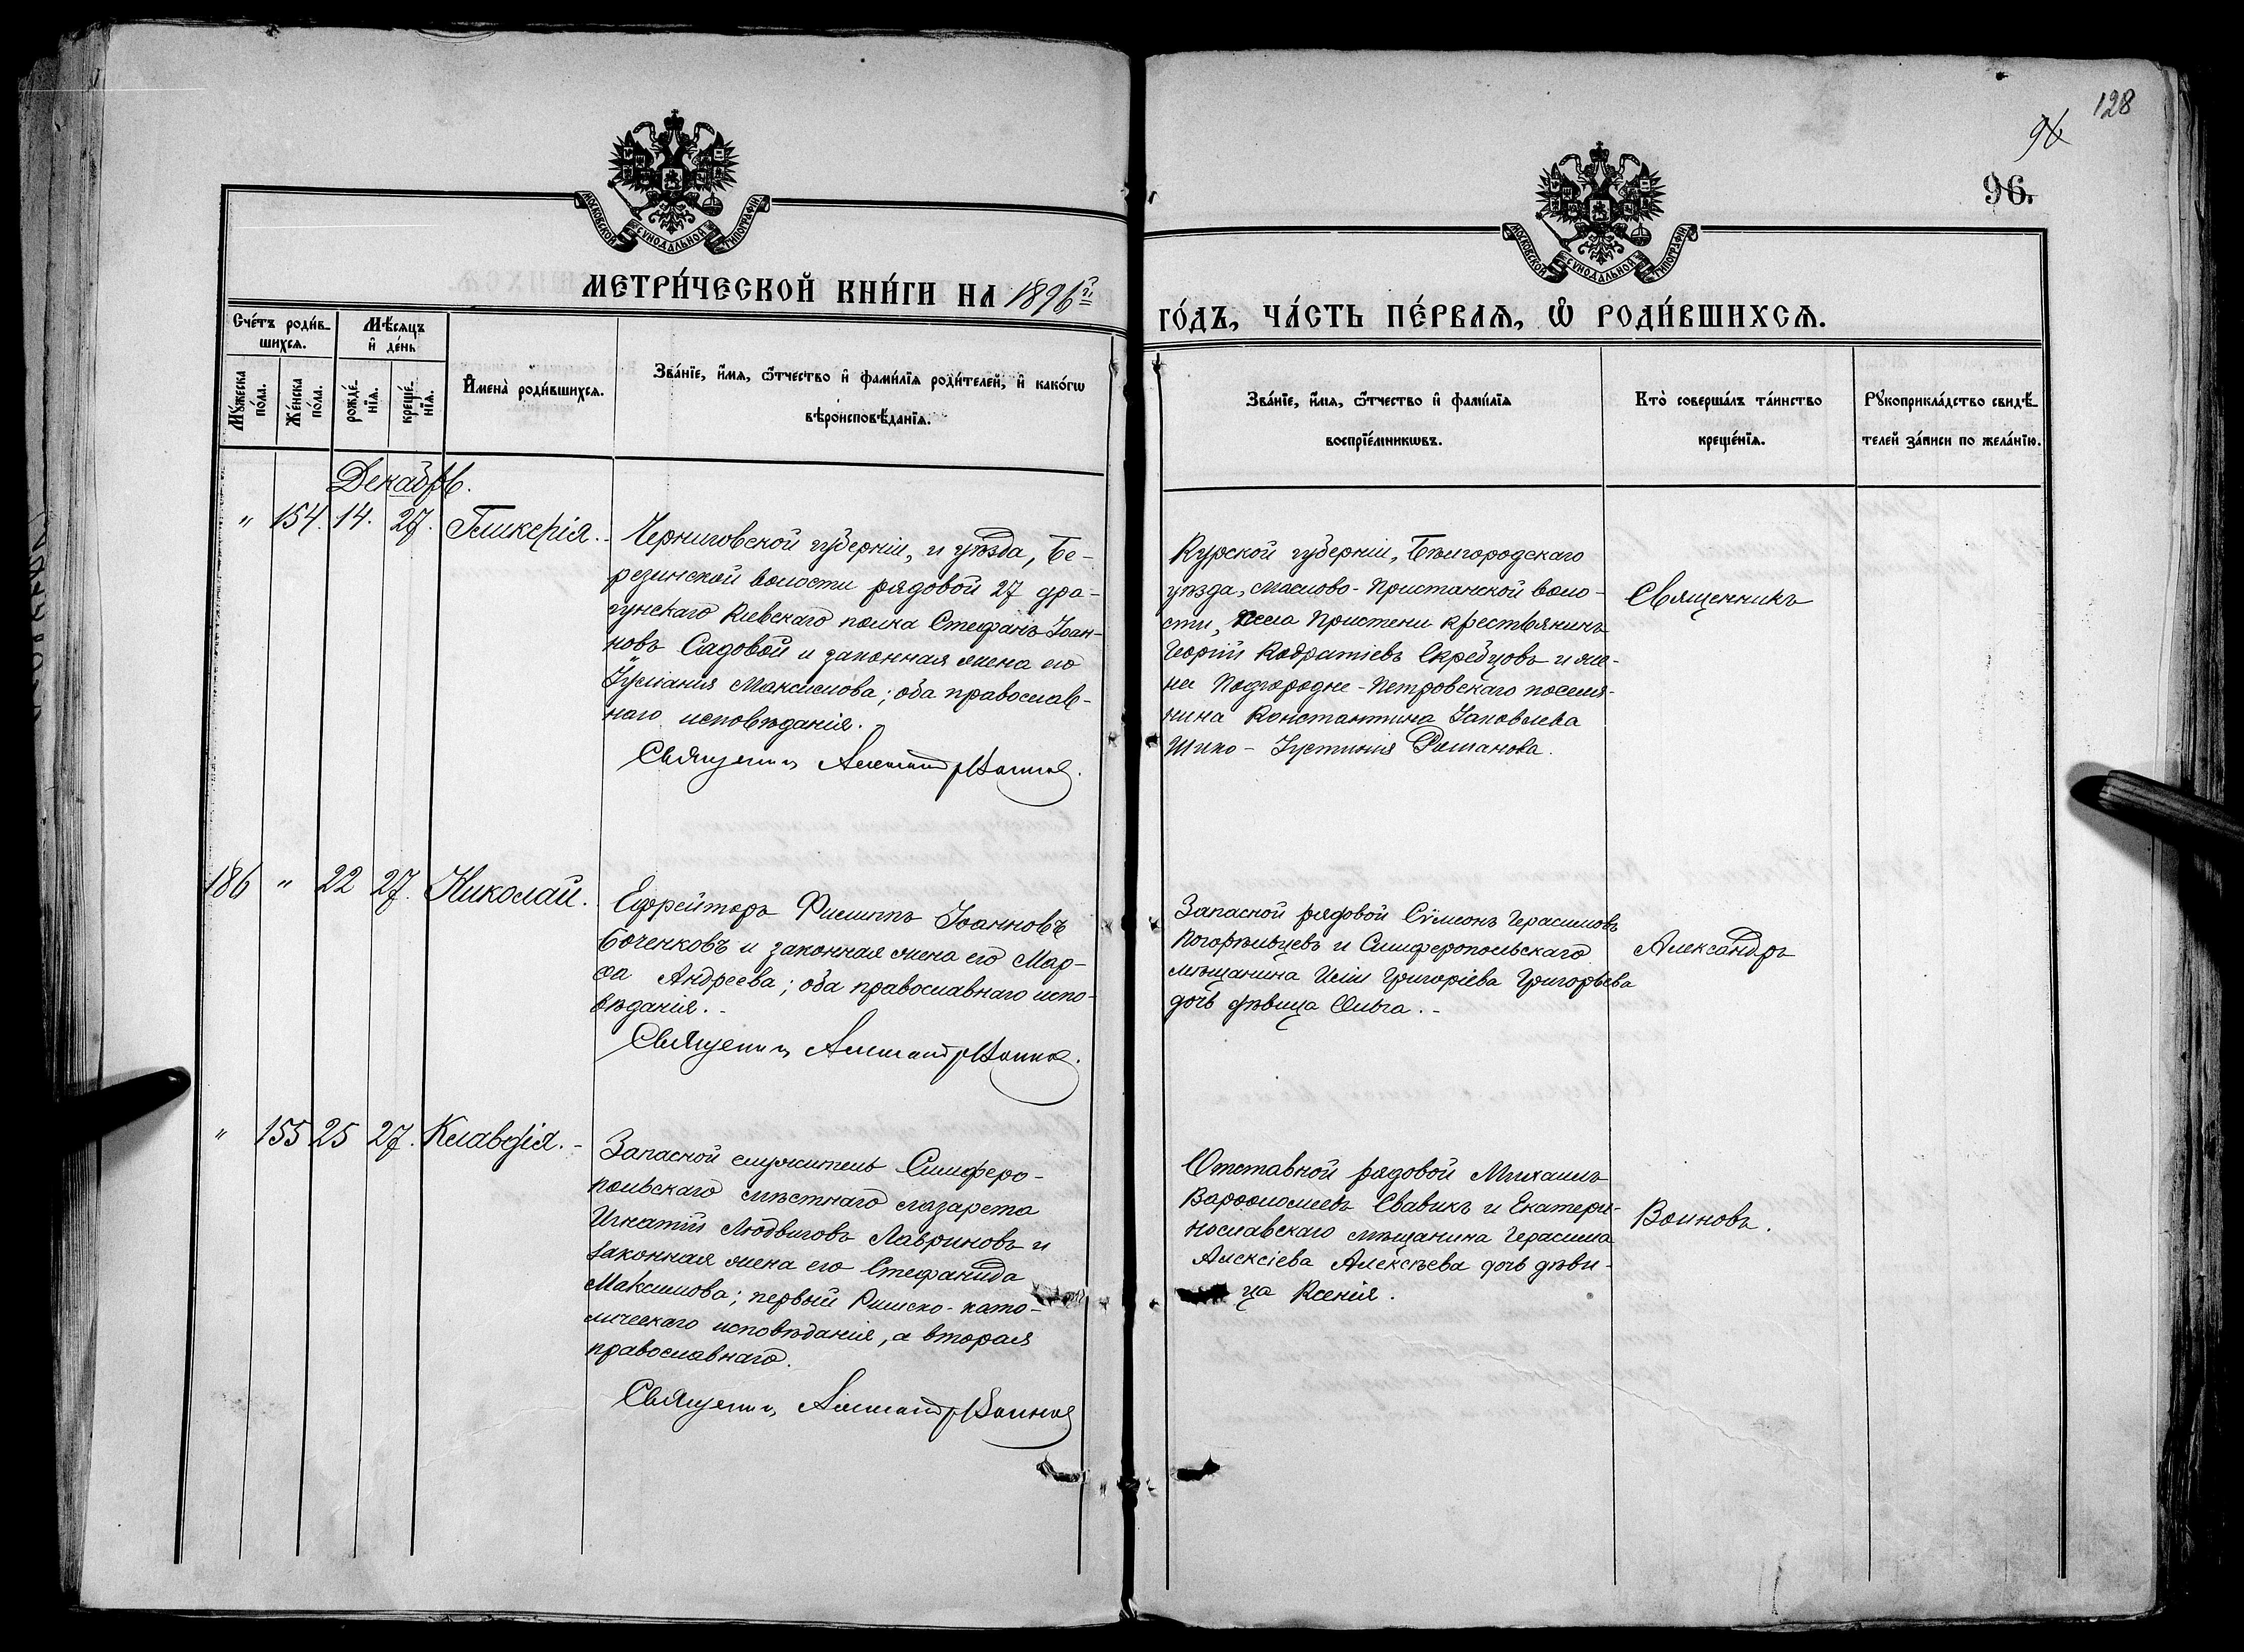 128
96
96.
МОСКОВСКОЙ СУНОДАЛЬНОЙ ТИПОГРАФІИ
МОСКОВСКОЙ СУНОДАЛЬНОЙ ТИПОГРАФІИ
МЕТРИ́ЧЕСКОЙ КНИ́ГИ НА 1896 г.
ГО́ДЪ, ЧА́СТЬ ПЕ́РВАѦ, Ѡ҆ РОДИ́ВШИХСѦ.
Сче́тъ роди́в-
шихсѧ.
Мѣ́сѧцъ
и҆ де́нь
Мꙋ́жеска
по́ла.
Же́нска
по́ла.
рожде́-
нїѧ.
креще́-
нїѧ.
И҆мена̀ роди́вшихсѧ.
Зва́нїе, и҆́мѧ, ѻ҆́тчество и҆ фами́лїѧ роди́телей, и҆ како́гѡ
вѣроисповѣ́данїѧ.
Зва́нїе, и҆́мѧ, ѻ҆́тчество и҆ фами́лїѧ
воспрїе́мникѡвъ.
Кто̀ соверша́лъ та́инство
креще́нїѧ.
Рꙋкоприкла́дство свидѣ́-
телей за́писи по жела́нїю.
Декабрь.
" 154. 14. 27. Гликерія.
Черниговской губерніи, и уѣзда, Бе-
резинской волости рядовой 27 дра-
гунскаго Кіевскаго полка Стефанъ Іоан-
новъ Садовой и законная жена его
Іуліанія Максимова; оба православ-
наго исповѣданія.
Священникъ Александръ Воиновъ.
Курской губерніи, Бѣлгородскаго
уѣзда, Маслово-Пристанской воло-
сти, села Пристени крестьянинъ
Георгій Кодратіевъ Скребцовъ и же-
на Подгородне-Петровскаго поселя-
нина Константина Іаковлева
Шико - Іустинія Романова.
Священникъ
186 " 22 27. Николай.
Ефрейторъ Филиппъ Іоанновъ
Боченковъ и законная жена его Мар-
ѳа Андреева; оба православнаго испо-
вѣданія.
Священникъ Александръ Воиновъ.
Запасной рядовой Сѷмеонъ Герасимовъ
Погорѣльцевъ и Симферопольскаго
мѣщанина Иліи Григоріева Григорьева
дочь дѣвица Ольга.
Александръ
" 155 25 27. Клавдія.
Запасной служитель Симферо-
польскаго мѣстнаго лазарета
Игнатій Людвиговъ Лавриновъ и
законная жена его Стефанида
Максимова; первый Римско-като-
лическаго исповѣданія, а вторая
православнаго.
Священникъ Александръ Воиновъ
Отставной рядовой Михаилъ
Варѳоломеевъ Свавикъ и Екатери-
нославскаго мѣщанина Герасима
Алексіева Алексѣева дочь дѣви-
ца Ксенія.
Воиновъ.